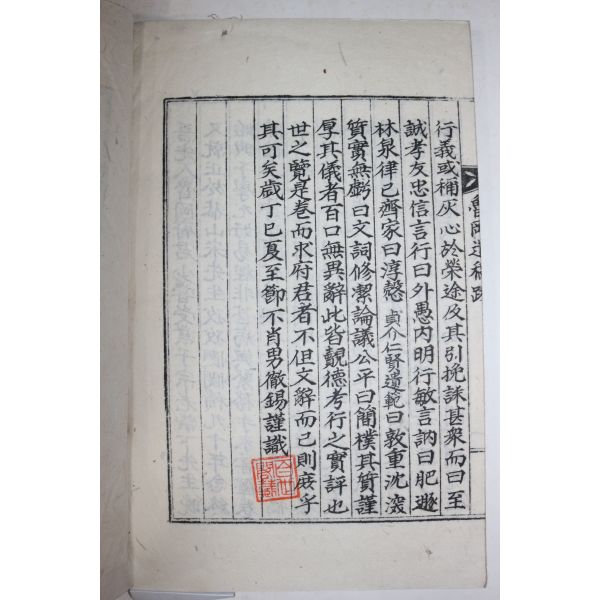 行義或補灰心於榮途及其引挽誄甚衆而曰至
誠孝友忠信言行曰外愚内明行敏言訥曰肥遯
林泉律己齊家曰淳慤貞介仁賢遺範曰敦重沈深
質實無虧曰文詞修潔論議公平曰簡樸其質謹
厚其儀者百口無異辭此皆覿德考行之實評也
世之覽是卷而求府君者不但文辭而已則庶乎
其可矣歲丁巳夏至節不肖男徹錫謹識
魯岡遺稿跋